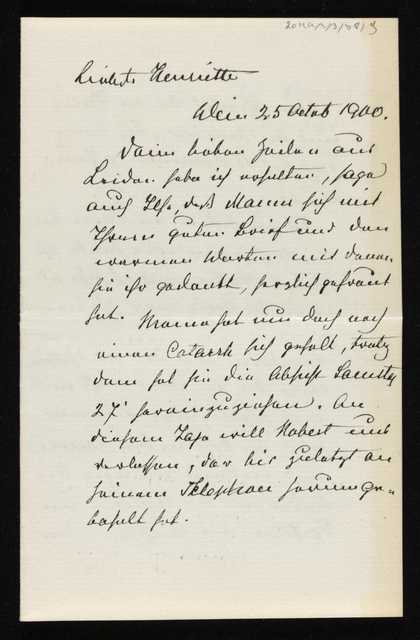 Liebste Henriette
Wien 25 Octob 1900.
Deine lieben Zeilen aus
Leiden habe ich erhalten, sage
auch Ilse, daß Mama sich mit
Ihrem guten Brief und den
warmen Worten mit denen
sie ihr gedankt, herzlich gefreut
hat. Mama hat nun doch noch
einen Catarrh sich geholt, trotz
dem hat sie die Absicht Samstag
27' hereinzuziehen. An
diesem Tage will Robert uns
verlassen, der bis zuletzt an
seinem Telephon herumge-
bastelt hat.